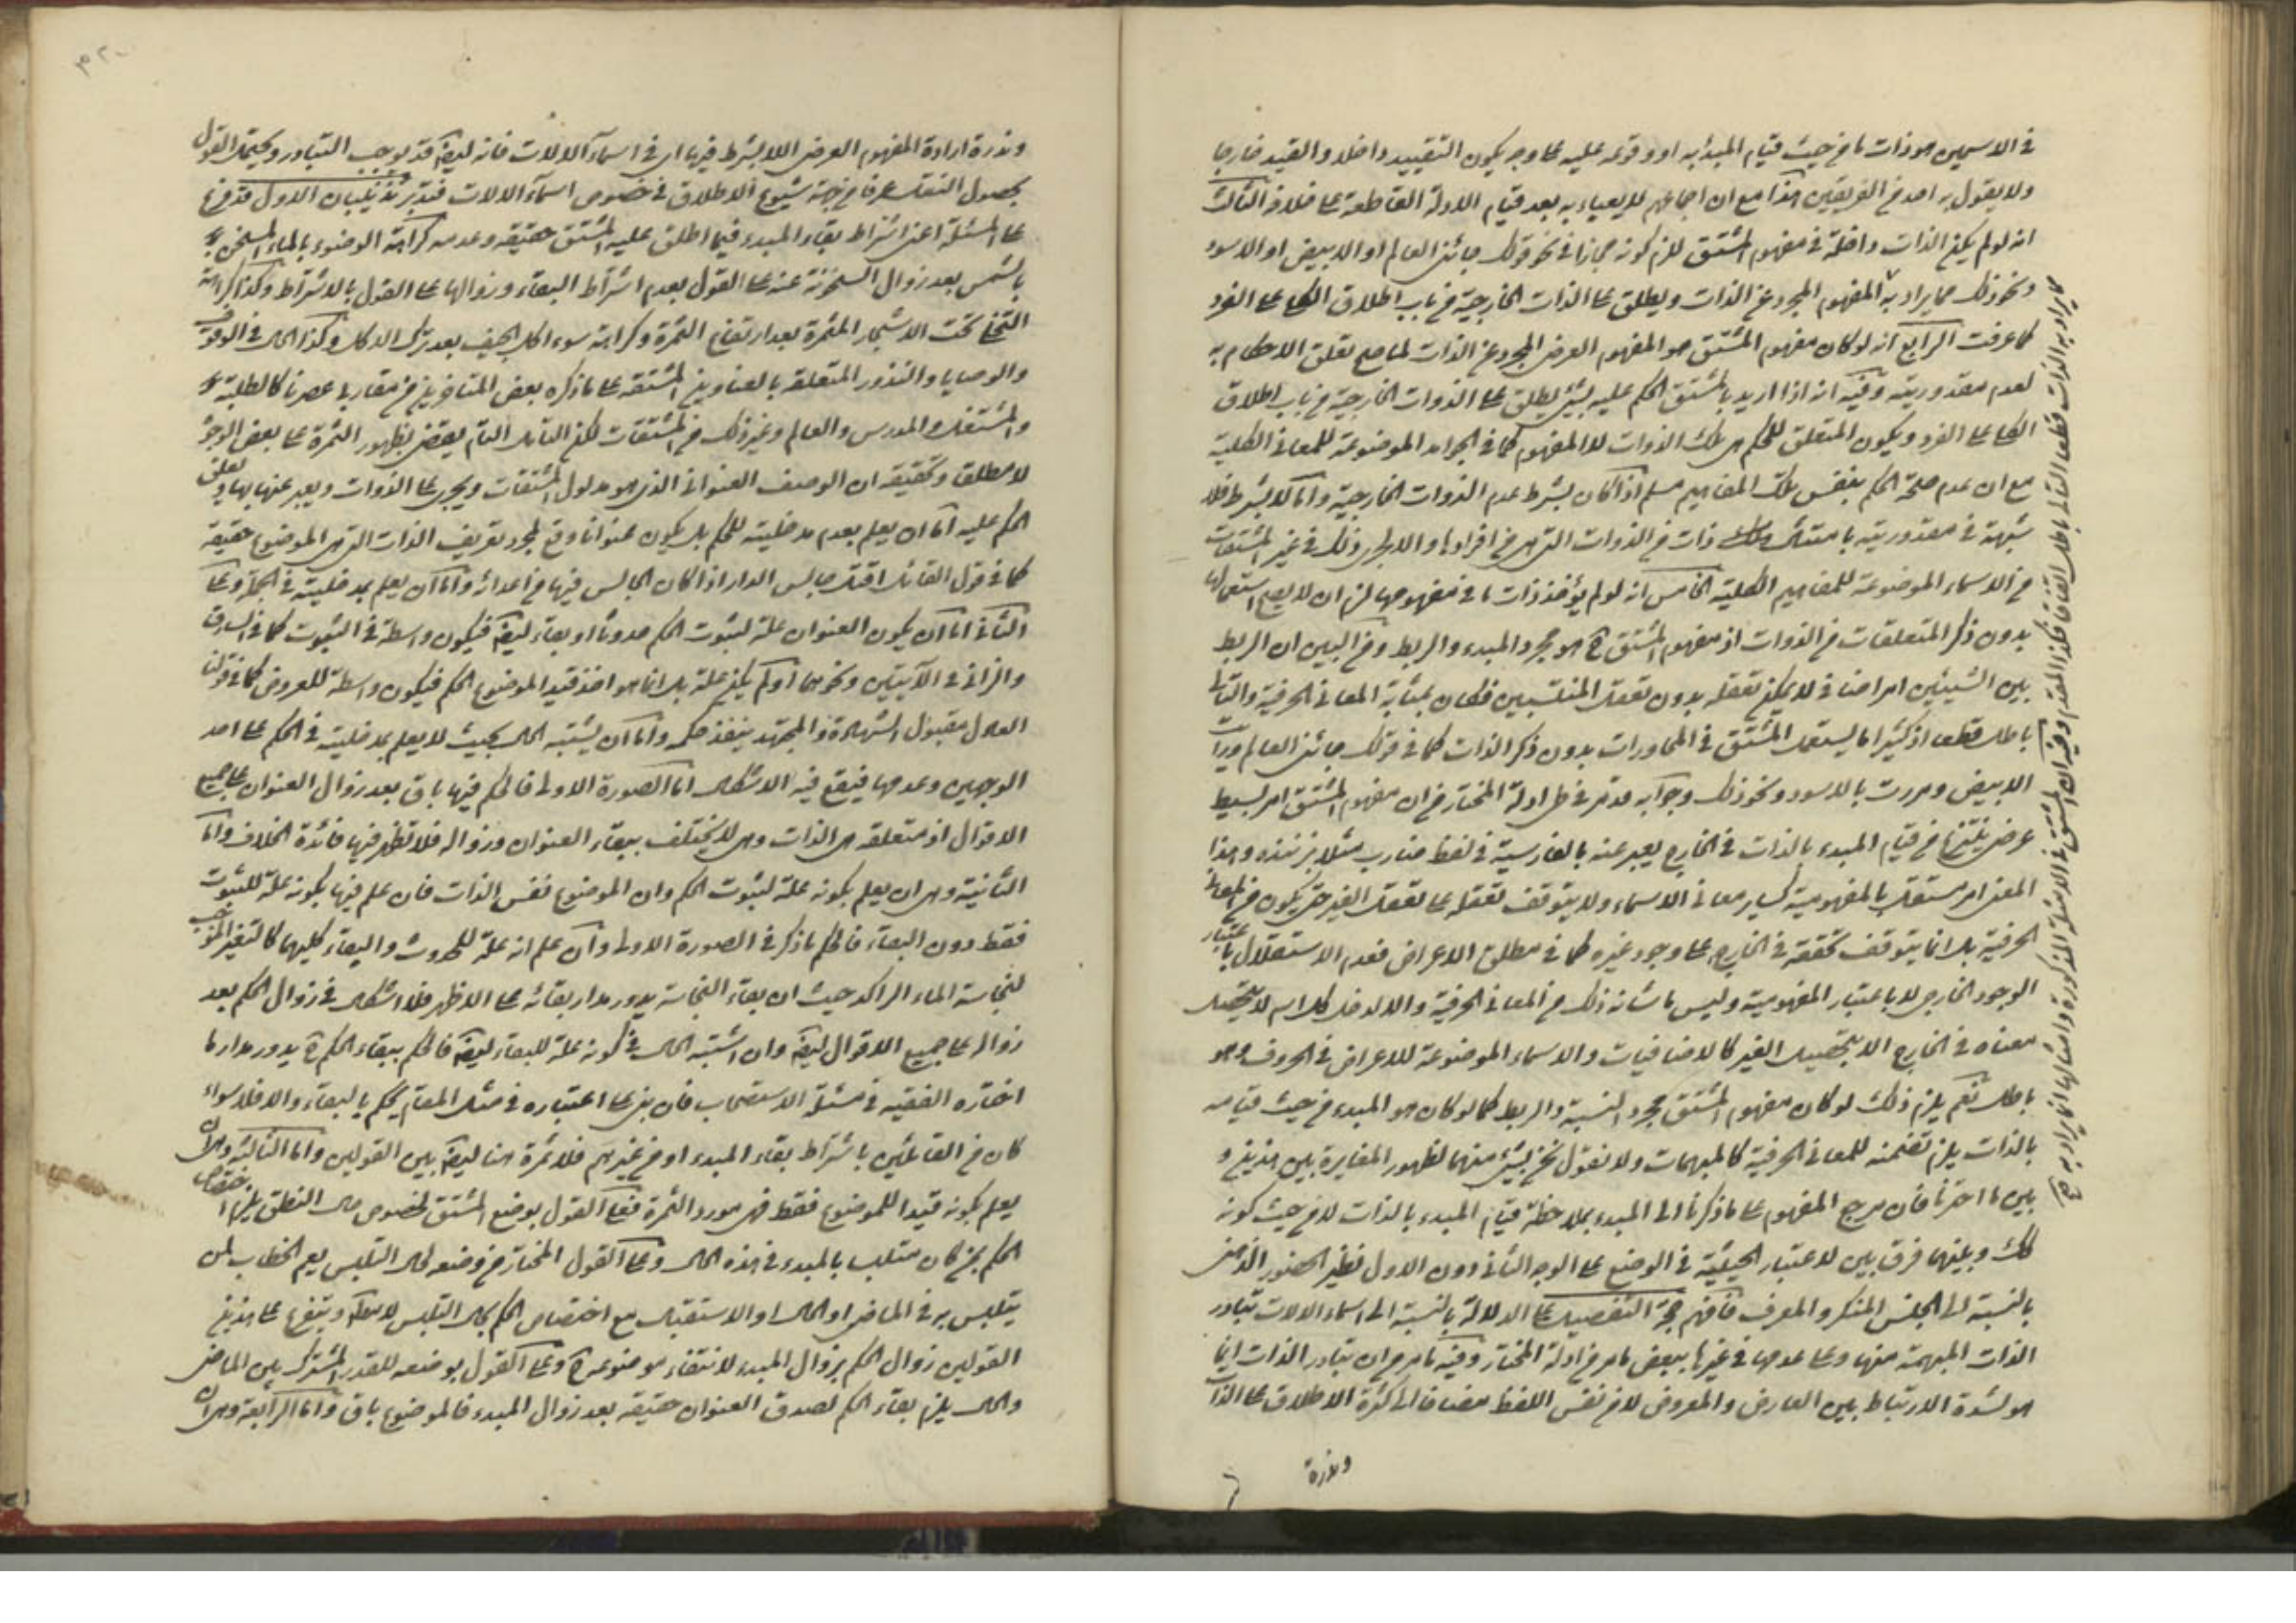 في الاسمين هو ذات ما من حيث قيام المبدء به او وقوعه عليه على وجه يكون التقييد داخلا والقيد خارجا
ولا يقول به احد من الفريقين هذا مع ان اجماعهم لا يعباء به بعد قيام الادلة القاطعة على خلافه الثالث
انه لو لم يكن الذات داخلة في مفهوم المشتق للزم كونه مجازا في نحو قولك جائني العالم او الابيض او الاسود
ونحو ذلك مما يراد به المفهوم المجرد عن الذات ويطلق على الذات الخارجية من باب اطلاق الكلي على الفرد
كما عرفت الرابع انه لو كان مفهوم المشتق هو المفهوم العرضي المجرد عن الذات لما صح تعلق الاحكام به
لعدم مقدوريته وفيه انه اذا اريد بالمشتق الحكم عليه بشيء يطلق على الذوات الخارجية من باب اطلاق
الكلي على الفرد ويكون المتعلق للحكم هي تلك الذوات لا المفهوم كما في الجوامد الموضوعة للمعاني الكلية
مع ان عدم صحة الحكم بنفس تلك المفاهيم مسلم اذا كان بشرط عدم الذوات الخارجية واما لا بشرط فلا
شبهة في مقدوريته بامتثال ذات من الذوات التي هي من افرادها والا لجرى ذلك في غير المشتقات
من الاسماء الموضوعة للمفاهيم الكلية الخامس انه لو لم يؤخذ ذات ما في مفهومها لزم ان لا يصح استعمالها
بدون ذكر المتعلقات من الذوات اذ مفهوم المشتق ح هو مجرد المبدء والربط ومن البين ان الربط
بين الشيئين امر اضافي لا يمكن تعقله بدون تعقل المنتسبين فكان بمثابة المعاني الحرفية والتالي
باطل قطعا اذ كثيرا ما يستعمل المشتق في المحاورات بدون ذكر الذات كما في قولك جائني العالم ورايت
الابيض ومررت بالاسود ونحو ذلك وجوابه قد مر في طي ادلة المختار من ان مفهوم المشتق امر بسيط
عرضي ينتزع من قيام المبدء بالذات في الخارج يعبر عنه بالفارسية في لفظ ضارب مثلا بزننده وهذا
المعنى امر مستقل بالمفهومية كساير معاني الاسماء ولا يتوقف تعقله على تعقل الغير حتى يكون من المعاني
الحرفية بل انما يتوقف تحققه في الخارج على وجود غيره كما في مطلق الاعراض فعدم الاستقلال باعتبار
الوجود الخارجي لا باعتبار المفهومية وليس ما شانه ذلك من المعاني الحرفية والا لدخل كل اسم لا يتحصل
معناه في الخارج الا بتحصيل الغير كالاضافيات والاسماء الموضوعة للاعراض في الحروف وهو
باطل نعم يلزم ذلك لو كان مفهوم المشتق مجرد النسبة والربط كما لو كان هو المبدء من حيث قيامه
بالذات يلزم تضمنه للمعاني الحرفية كالمبهمات ولا نقول نحن بشيء منهما لظهور المغايرة بين هذين و
بين ما اخترنا فان مرجع المفهوم على ما ذكرنا الى المبدء بملاحظة قيام المبدء بالذات لا من حيث كونه
كك وبينهما فرق بين لاعتبار الحيثية في الوضع على الوجه الثاني دون الاول نظير الحضور الذهني
بالنسبة الى الجنس المنكر والمعرف فافهم حجة التفصيل على الدلالة بالنسبة الى اسماء الالات تبادر
الذات المبهمة منها وعلى عدمها في غيرها ببعض ما مر من ادلة المختار وفيه ما مر من ان تبادر الذات انما
هو لشدة الارتباط بين العارض والمعروض لا من نفس اللفظ مضافا الى كثرة الاطلاق على الذات
وندرة
وندرة ارادة المفهوم العرضي اللا بشرط فيها اي في اسماء الالات فانه ايضا قد يوجب التبادر ويحتمل القول
بحصول النقل عرفا من جهة شيوع الاطلاق في خصوص اسماء الالات فتدبر تذنيبان الاول قد فرع
على المسئلة اعني اشتراط بقاء المبدء فيما اطلق عليه المشتق حقيقة وعدمه كراهة الوضوء بالماء المسخن
بالشمس بعد زوال السخونة عنه على القول بعدم اشتراط البقاء وزوالها على القول بالاشتراط وكذا كراهة
التخلي تحت الاشجار المثمرة بعد ارتفاع الثمرة وكراهة سوء اكل الجيف بعد ترك الاكل وكذا الحال في الوقوف
والوصايا والنذور المتعلقة بالعناوين المشتقة على ما ذكره بعض المتاخرين من مقاربي عصرنا كالطلبة
والمشتغل والمدرس والعالم وغير ذلك من المشتقات لكن التامل التام يقضي بظهور الثمرة على بعض الوجوه
لا مطلقا وتحقيقه ان الوصف العنواني الذي هو مدلول المشتقات ويجري على الذوات ويعبر عنها بها ويعلق
الحكم عليه اما ان يعلم بعدم مدخليته للحكم بل يكون عنوانا وقع لمجرد تعريف الذات التي هي الموضوع حقيقة
كما في قول القائل اقتل جالس الدار اذا كان الجالس فيها من اعدائه واما ان يعلم بمدخليته في الجملة وعلى
الثاني اما ان يكون العنوان علة لثبوت الحكم حدوثا او بقاء ايضا فيكون واسطة في الثبوت كما في السارق
والزاني في الآيتين ونحوهما او لم يكن علة بل انما هو اخذ قيدا لموضوع الحكم فيكون واسطة للعروض كما في قولنا
العادل مقبول الشهادة والمجتهد ينفذ حكمه واما ان يشتبه الحال بحيث لا يعلم بمدخليته في الحكم على احد
الوجهين وعدمها فيقع فيه الاشكال اما الصورة الاولى فالحكم فيها باق بعد زوال العنوان على جميع
الاقوال اذ متعلقه هي الذات وهي لا يختلف ببقاء العنوان وزواله فلا تظهر فيها فائدة الخلاف واما
الثانية وهي ان يعلم بكونه علة لثبوت الحكم وان الموضوع نفس الذات فان علم فيها بكونه علة للثبوت
فقط دون البقاء فالحكم ما ذكر في الصورة الاولى وان علم انه علة للحدوث والبقاء كليهما كالتغير الموجب
لنجاسة الماء الراكد حيث ان بقاء النجاسة يدور مدار بقائه على الاظهر فلا اشكال في زوال الحكم بعد
زواله على جميع الاقوال ايضا وان اشتبه الحال في كونه علة للبقاء ايضا فالحكم ببقاء الحكم ح يدور مدار ما
اختاره الفقيه في مسئلة الاستصحاب فان بنى على اعتباره في مثل المقام يحكم بالبقاء والا فلا سواء
كان من القائلين باشتراط بقاء المبدء او من غيرهم فلا ثمرة هنا ايضا بين القولين واما الثالثة وهي ان
يعلم بكونه قيدا للموضوع فقط فهي مورد الثمرة فعلى القول بوضع المشتق لخصوص حال النطق يلزم اختصاص
الحكم بمن كان متلبسا بالمبدء في هذه الحال وعلى القول المختار من وضعه لحال التلبس يعم الخطاب لمن
يتلبس به في الماضي او الحال او الاستقبال مع اختصاص الحكم بحال التلبس لا مطلقا ويتفرع على هذين
القولين زوال الحكم بزوال المبدء لانتفاء موضوعه ح وعلى القول بوضعه للقدر المشترك بين الماضي
والحال يلزم بقاء الحكم لصدق العنوان حقيقة بعد زوال المبدء فالموضوع باق واما الرابعة وهي ان